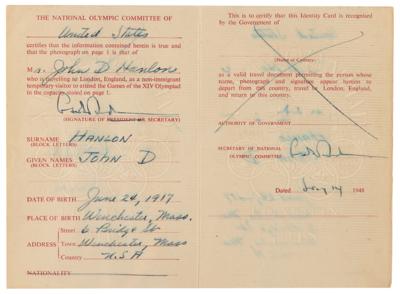 THE NATIONAL OLYMPIC COMMITTEE OF
United States
certifies that the information contained herein is true and
that the photograph on page 1 is that of
Mr. John D Hanlon
who is travelling to London, England, as a non-immigrant
temporary visitor to attend the Games of the XIV Olympiad
in the capacity stated on page 1.
(SIGNATURE OF PRESIDENT OR SECRETARY)
SURNAME HANLON
(BLOCK LETTERS)
GIVEN NAMES JOHN D
(BLOCK LETTERS)
DATE OF BIRTH June 24, 1917
PLACE OF BIRTH Winchester, Mass.
Street 6 Bridge St
ADDRESS Town Winchester, Mass
Country U.S.A
NATIONALITY
This is to certify that this Identity Card is recognised
by the Government of
(Name of Country)
as a valid travel document permitting the person whose
name, photograph and signature appear herein to
depart from this country, travel to London, England,
and return to this country.
AUTHORITY OF GOVERNMENT
SECRETARY OF NATIONAL
OLYMPIC COMMITTEE
Dated 14 1948